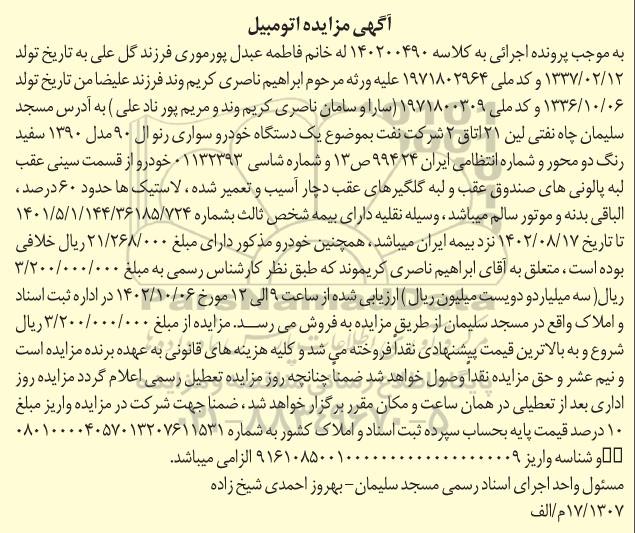 آگهی مزایده اتومبیل
به موجب پرونده اجرائی به کلاسه ۱۴۰۲۰۰۴۹۰ له خانم فاطمه عبدل پورموری فرزند گل علی به تاریخ تولد
۱۳۳۷/۰۲/۱۲ و کد ملی ۱۹۷۱۸۰۲۹۶۴ علیه ورثه مرحوم ابراهیم ناصری کریم وند فرزند علیضامن تاریخ تولد
۱۳۳۶/۱۰/۰۶ و کد ملی ۱۹۷۱۸۰۰۳۰۹ (سارا و سامان ناصری کریم وند و مریم پور ناد علی ) به آدرس مسجد
سلیمان چاه نفتی لین ۲۱ اتاق ۲ شرکت نفت بموضوع یک دستگاه خودرو سواری رنو ال ۹۰ مدل ۱۳۹۰ سفید
رنگ دو محور و شماره انتظامی ایران ۲۴ ۹۹۴ص۱۳ و شماره شاسی ۰۱۱۳۲۳۹۳ خودرو از قسمت سینی عقب
لبه پالونی های صندوق عقب و لبه گلگیرهای عقب دچار آسیب و تعمیر شده ، لاستیک ها حدود ۶۰ درصد ،
الباقی بدنه و موتور سالم میباشد ، وسیله نقلیه دارای بیمه شخص ثالث بشماره ۱۴۰۱/۵/۱/۱۴۴/۳۶۱۸۵/۷۲۴
تا تاریخ ۱۴۰۲/۰۸/۱۷ نزد بیمه ایران میباشد ، همچنین خودرو مذکور دارای مبلغ ۲۱/۲۶۸/۰۰۰ ریال خلافی
بوده است ، متعلق به آقای ابراهیم ناصری کریموند که طبق نظر کارشناس رسمی به مبلغ ۳/۲۰۰/۰۰۰/۰۰۰
ریال( سه میلیاردو دویست میلیون ریال ) ارزیابی شده از ساعت ۹ الی ۱۲ مورخ ۱۴۰۲/۱۰/۰۶ در اداره ثبت اسناد
و املاک واقع در مسجد سلیمان از طریق مزایده به فروش می رسد. مزایده از مبلغ ۳/۲۰۰/۰۰۰/۰۰۰ ریال
شروع و به بالاترین قیمت پیشنهادی نقدا فروخته می شد و کلیه هزینه های قانونی به عهده برنده مزایده است
و نیم عشر و حق مزایده نقداً وصول خواهد شد ضمناً چنانچه روز مزایده تعطیل رسمی اعلام گردد مزایده روز
اداری بعد از تعطیلی در همان ساعت و مکان مقرر برگزار خواهد شد ، ضمنا جهت شرکت در مزایده واریز مبلغ
۱۰ درصد قیمت پایه بحساب سپرده ثبت اسناد و املاک کشور به شماره ۰۸۰۱۰۰۰۰۴۰۵۷۰۱۳۲۰۷۶۱۱۵۳۱
و شناسه واریز الزامی میباشد.
مسئول واحد اجرای اسناد رسمی مسجد سلیمان- بهروز احمدی شیخ زاده
۱۷/۱۳۰۷/م/الف